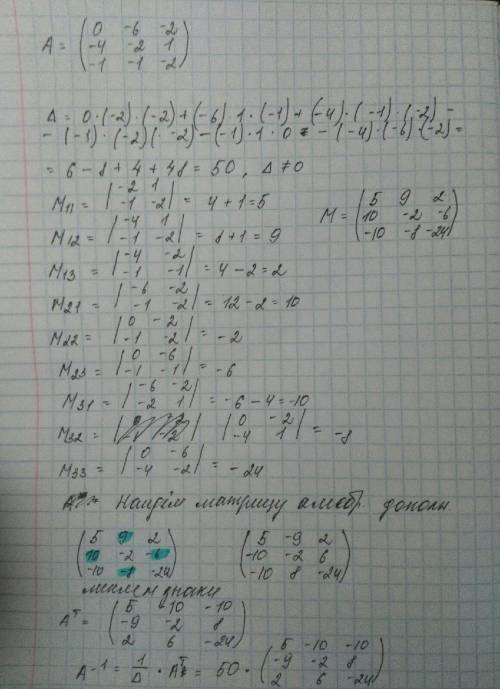 A = ( 0 -6 -2
-4 -2 1
-1 -1 -2 )
Δ = 0·(-2)·(-2)+(-6)·1·(-1)+(-4)·(-1)·(-2) -
- (-1)·(-2)(-2)-(-1)·1·0 - (-4)·(-6)·(-2) =
= 6 - 8 + 4 + 48 = 50, Δ ≠ 0
M11 = | -2 1
-1 -2 | = 4 + 1 = 5
M = ( 5 9 2
10 -2 -6
-10 -8 -24 )
M12 = | -4 1
-1 -2 | = 8 + 1 = 9
M13 = | -4 -2
-1 -1 | = 4 - 2 = 2
M21 = | -6 -2
-1 -2 | = 12 - 2 = 10
M22 = | 0 -2
-1 -2 | = -2
M23 = | 0 -6
-1 -1 | = -6
M31 = | -6 -2
-2 1 | = -6 - 4 = -10
M32 = | 0 -2
-4 1 | = -8
M33 = | 0 -6
-4 -2 | = -24
Найдём матрицу алгебр. дополн.
( 5 9 2
10 -2 -6
-10 -8 -24 )
( 5 -9 2
-10 -2 6
-10 8 -24 )
меняем знаки
Aᵀ = ( 5 -10 -10
-9 -2 8
2 6 -24 )
A⁻¹ = 1/Δ · Aᵀ = 50 · ( 5 -10 -10
-9 -2 8
2 6 -24 )